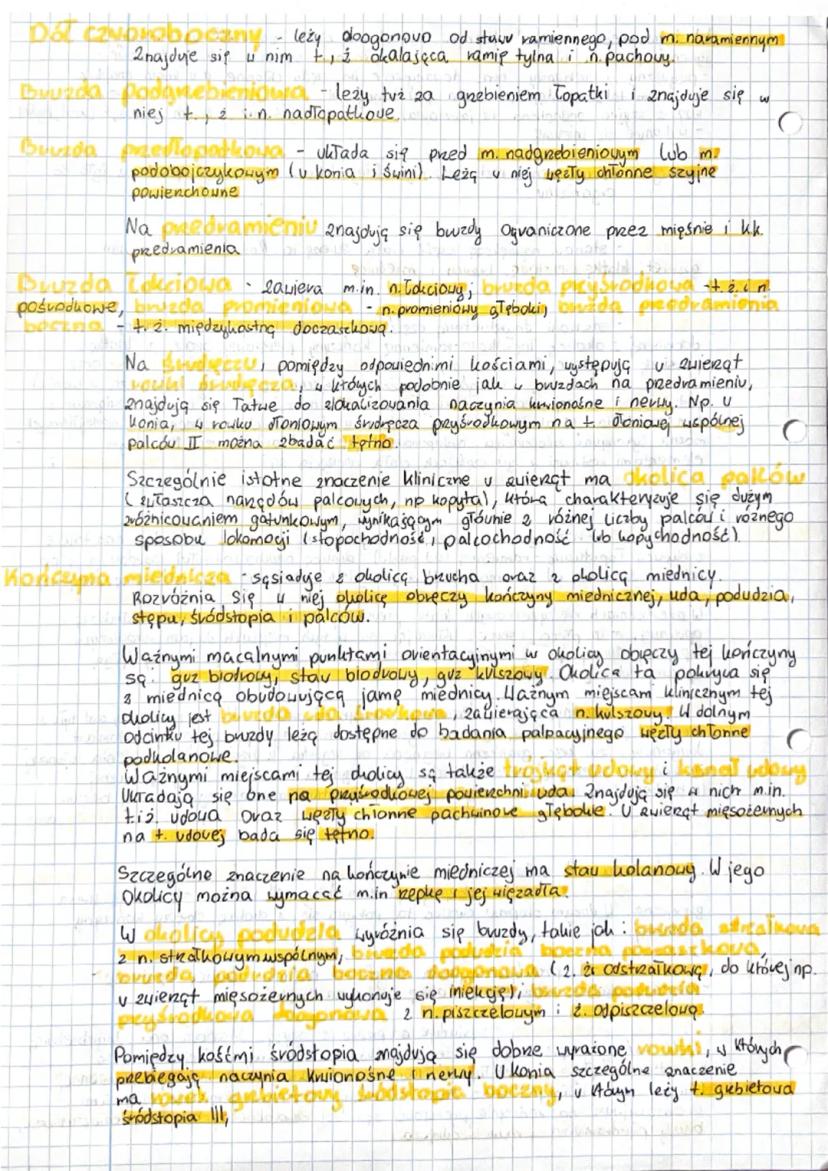 Dół czworoboczny - leży doogonowo od stawu ramiennego, pod m. naramiennym
Znajduje się w nim t., ż okalająca ramię tylna i n. pachowy.
Bruzda podgrzebieniowa - leży tuż za grzebieniem łopatki i znajduje się w
niej t., ż i n. nadłopatkowe
Bruzda przedłopatkowa - układa się przed m. nadgrzebieniowym lub m.
podobojczykowym (u konia i świni). Leżą w niej węzły chłonne szyjne
powierzchowne
Na przedramieniu znajdują się bruzdy ograniczone przez mięśnie i kk.
przedramienia
Bruzda łokciowa - zawiera m.in. n. łokciowy; bruzda przyśrodkowa - t. ż. i n.
pośrodkowe, bruzda promieniowa - n. promieniowy głęboki, bruzda przedramienia
boczna - t. ż. międzykostną doczaszkową.
Na śródręczu, pomiędzy odpowiednimi kościami, występują u zwierząt
rowki śródręcza, w których podobnie jak w bruzdach na przedramieniu,
znajdują się łatwe do zlokalizowania naczynia krwionośne i nerwy. Np. u
konia, w rowku dłoniowym śródręcza przyśrodkowym na t. dłoniowej wspólnej
palców II można zbadać tętno.
Szczególnie istotne znaczenie kliniczne u zwierząt ma okolica palców
(zwłaszcza narządów palcowych, np kopyta), która charakteryzuje się dużym
zróżnicowaniem gatunkowym, wynikającym głównie z różnej liczby palców i różnego
sposobu lokomocji (stopochodność, palcochodność lub kopychodność).
Kończyna miednicza - sąsiaduje z okolicą brzucha oraz z okolicą miednicy.
Rozróżnia się w niej okolicę obręczy kończyny miednicznej, uda, podudzia,
stępu, śródstopia i palców.
Ważnymi macalnymi punktami orientacyjnymi w okolicy obręczy tej kończyny
są: guz biodrowy, staw biodrowy, guz kulszowy. Okolica ta pokrywa się
z miednicą obudowującą jamę miednicy. Ważnym miejscam klinicznym tej
okolicy jest bruzda uda środkowa, zawierająca n. kulszowy. W dolnym
odcinku tej bruzdy leżą dostępne do badania palpacyjnego węzły chłonne
podkolanowe.
Ważnymi miejscami tej okolicy są także trójkąt udowy i kanał udowy
Układają się one na przyśrodkowej powierzchni uda. Znajdują się w nich m.in.
t. i ż. udowa oraz węzły chłonne pachwinowe głębokie. U zwierząt mięsożernych
na t. udowej bada się tętno.
Szczególne znaczenie na kończynie miedniczej ma staw kolanowy. W jego
okolicy można wymacać m.in rzepkę i jej więzadła.
W okolicy podudzia wyróżnia się bruzdy, takie jak: bruzda strzałkowa
z n. strzałkowym wspólnym, bruzda podudzia boczna doczaszkowa,
bruzda podudzia boczna doogonowa (z. ż. odstrzałkową, do której np.
u zwierząt mięsożernych wykonuje się iniekcje), bruzda podudzia
przyśrodkowa doogonowa z n. piszczelowym i ż. odpiszczelową.
Pomiędzy kośćmi śródstopia znajdują się dobrze wyrażone rowki, w których
przebiegają naczynia krwionośne i nerwy. U konia szczególne znaczenie
ma rowek grzbietowy śródstopia boczny, w którym leży t. grzbietowa
śródstopia III,